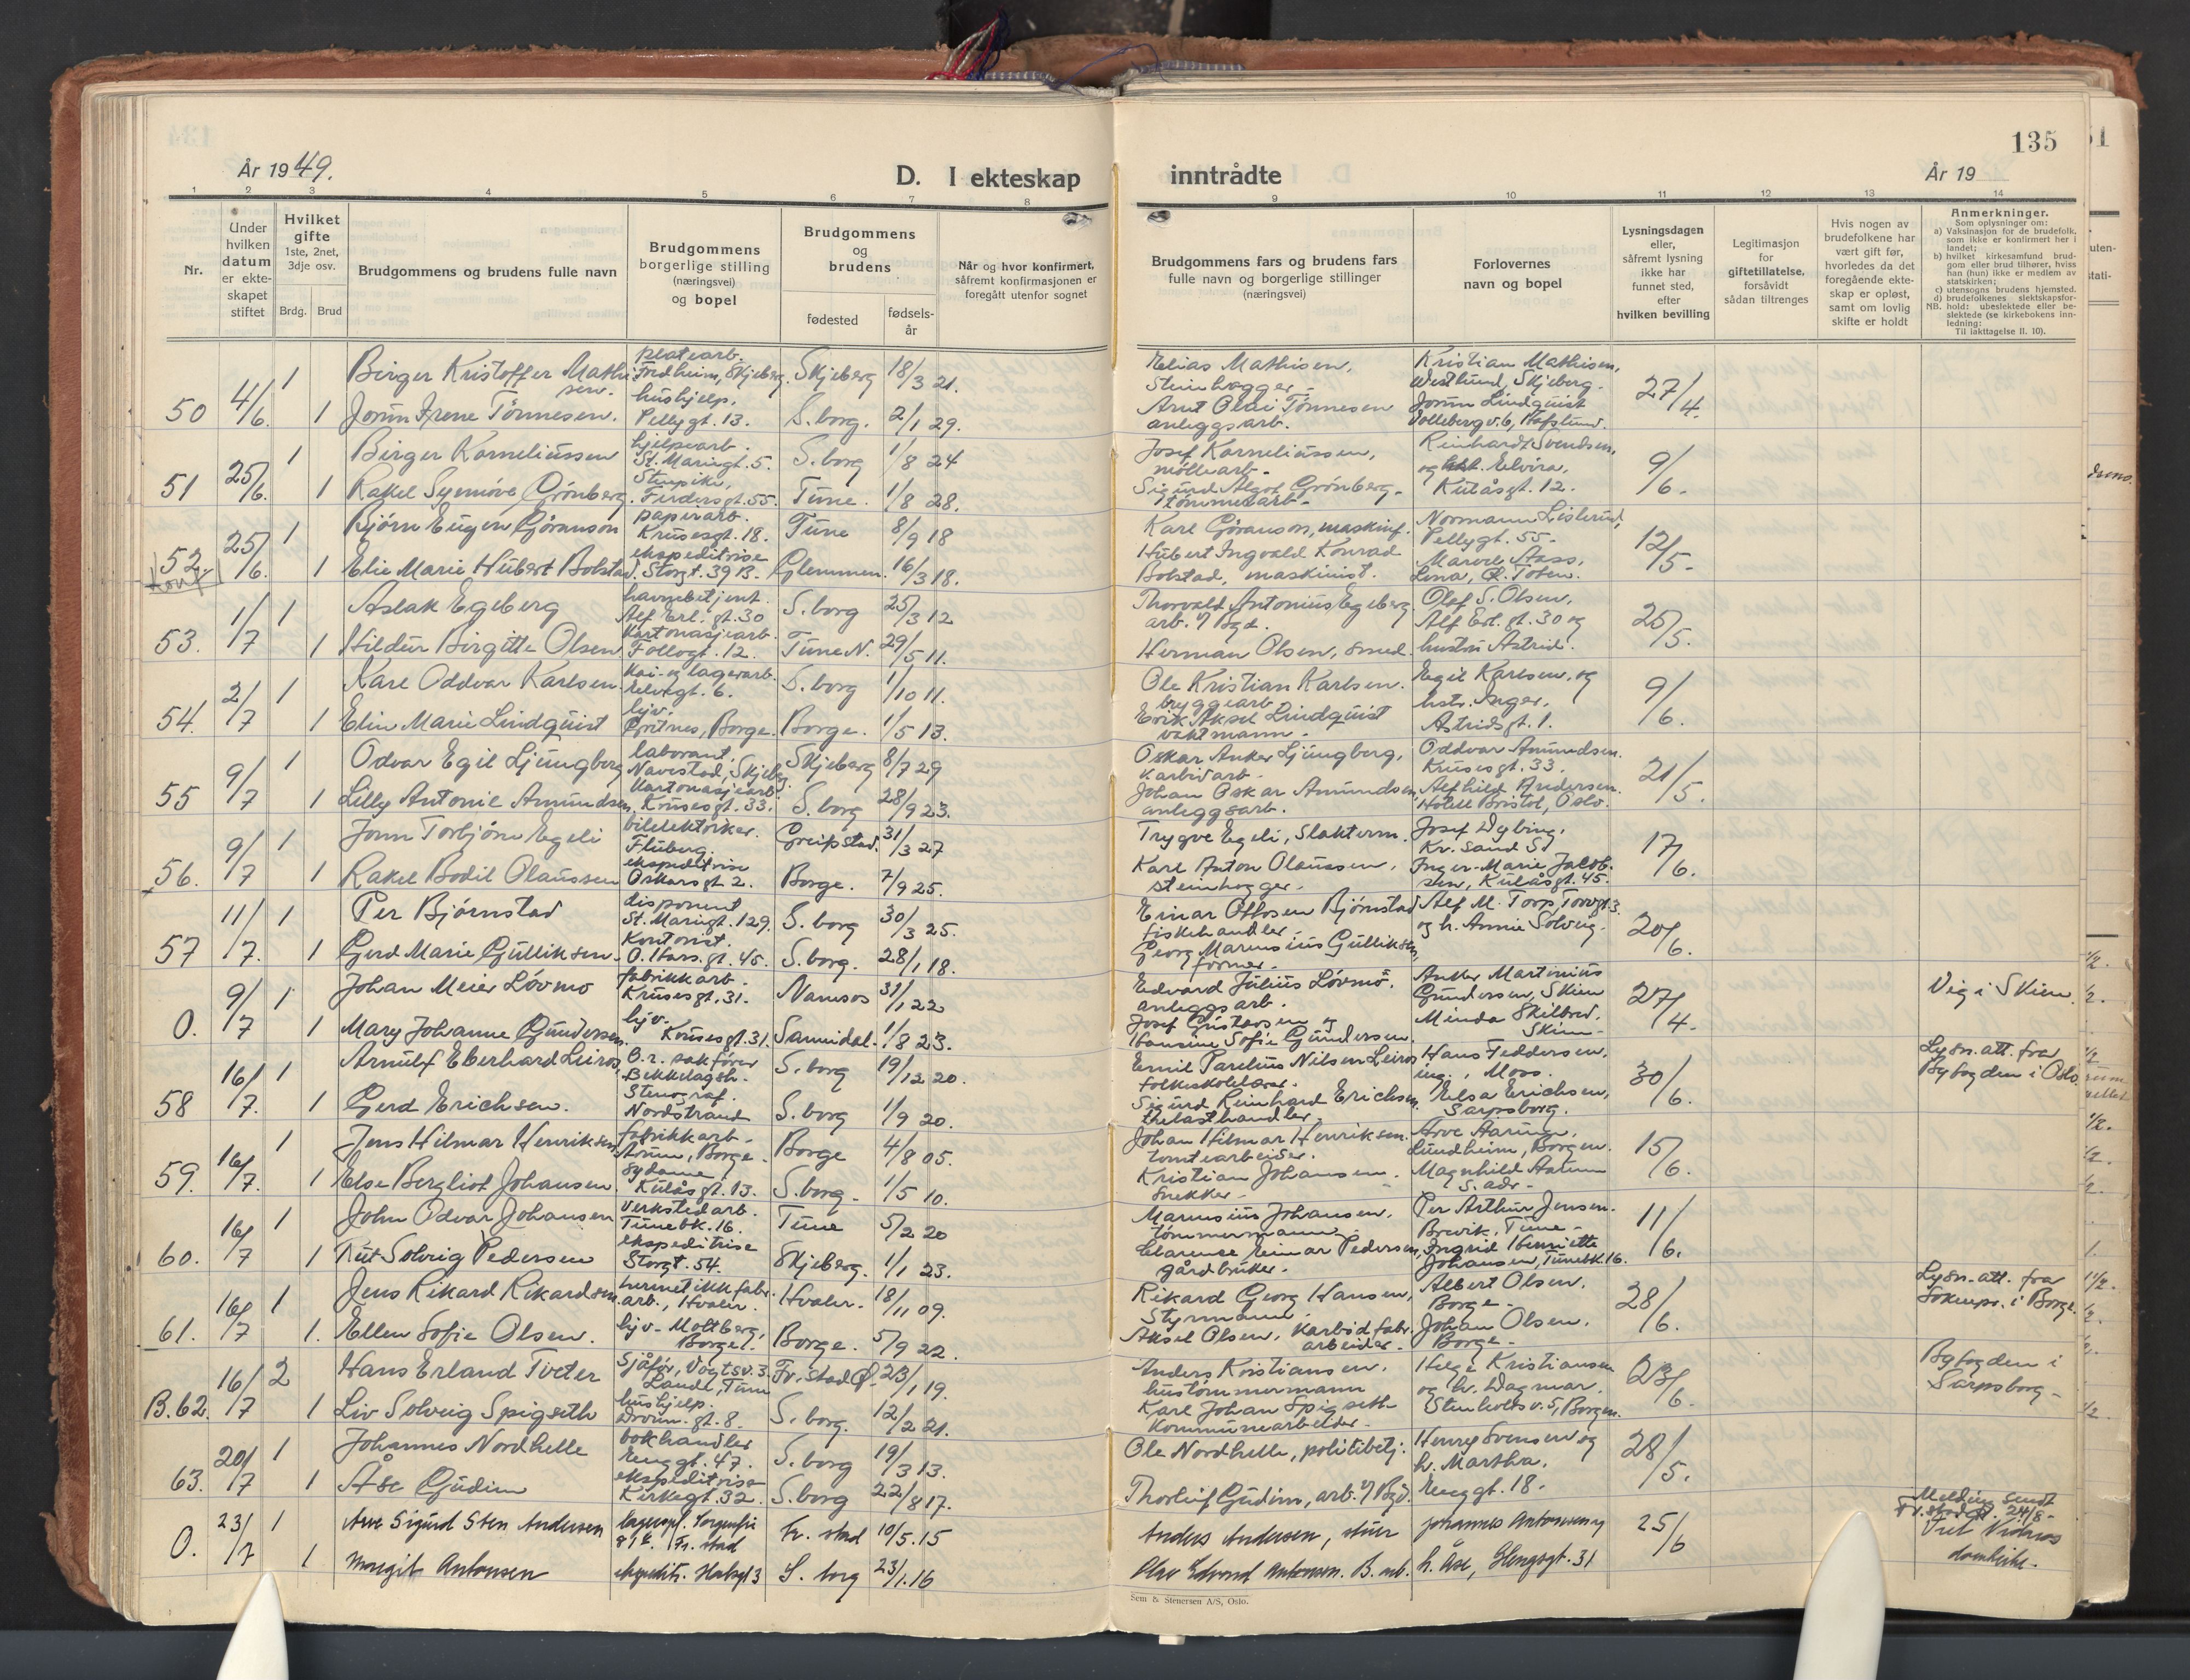 135
År 1949.
D. I ekteskap inntrådte
År 19
1 2 3 4 5 6 7 8 9 10 11 12 13 14
Nr.
Under hvilken datum er ekteskapet stiftet
Hvilket gifte 1ste, 2net, 3dje osv.
Brdg. Brud
Brudgommens og brudens fulle navn
Brudgommens borgerlige stilling (næringsvei) og bopel
Brudgommens og brudens
fødested
fødselsår
Når og hvor konfirmert, såfremt konfirmasjonen er foregått utenfor sognet
Brudgommens fars og brudens fars fulle navn og borgerlige stillinger (næringsvei)
Forlovernes navn og bopel
Lysningsdagen eller, såfremt lysning ikke har funnet sted, efter hvilken bevilling
Legitimasjon for giftetillatelse, forsåvidt sådan tiltrenges
Hvis nogen av brudefolkene har vært gift før, hvorledes da det foregående ekteskap er opløst, samt om lovlig skifte er holdt
Anmerkninger.
Som oplysninger om:
a) Vaksinasjon for de brudefolk, som ikke er konfirmert her i landet;
b) hvilket kirkesamfund brudgom eller brud tilhører, hviss han (hun) ikke er medlem av statskirken;
c) utensogns brudens hjemsted.
d) brudefolkenes slektskapsforhold: ubeslektede eller beslektede (se kirkebokens innledning:
NB. Til iakttagelse II. 10).
50 4/6 1 Birger Kristoffer Mathisen. platearb. Fredheim, Skjeberg. Skjeberg 18/3 21. Elias Mathisen, Steinhogger - Kristian Mathisen, Westlund, Skjeberg - 27/4.
1 Jorun Irene Tønnesen. hushjelp. Pellygt. 13. S. borg. 2/1 29. Arnt Olai Tønnesen anleggsarb. Jorun Lindquist Vollebergv. 6, Hafslund.
51 25/6. 1 Birger Karneliussen hjelpearb. St. Mariegt. 5. S. borg 1/8 24 Josef Karneliussen, møllearb - Reinhardt Svendsen, og Elvira, Kulåsgt. 12. 9/6.
1 Rakel Synnøve Grønberg. Furdersgt. 55. Tune. 1/8 28. Sigurd Algot Grønberg - tømmerarb -
52. 25/6. 1 Bjørn Eugen Gøranson papirarb. Krusesgt. 18. Tune 8/9 18 Karl Gøranson, maskinf. Normann Lislerud, Pellygt. 55 - 12/5 -
1 Elie Marie Hubert Bolstad. ekspeditrise Storgt. 39 B - Glemmen. 16/3 18. Hubert Ingvald Konrad Bolstad, maskinist. Aass, Lena, Ø. Toten.
53. 1/7 1 Aslak Egeberg havnebetjent. Alf Erl. gt. 30 S. borg 25/3 12 Thorvald Antonius Egeberg arb. v/ Bgd. Olaf S. Olsen, Alf Erl. gt. 30 og hustru Astrid. 25/5.
1 Hildur Birgitte Olsen Kartonasjearb. Follogt. 12. Tune N. 29/5 11. Herman Olsen, smed.
54. 2/7 1 Karl Oddvar Karlsen. Kai- og lagerarb. Elvegt. 6. S. borg 1/10 11. Ole Kristian Karlsen. bryggearb Egil Karlsen, og hstr. Inger, Astridsgt. 1. 9/6.
1 Elin Marie Lindquist hjv. Borge. Borge. 1/5 13. Erik Aksel Lindquist vaktmann -
55 9/7 1 Odvar Egil Ljungberg laborant, Navestad, Skjeberg. Skjeberg 8/7 29 Oskar Anker Ljungberg, karbidarb - Oddvar Amundsen. Krusesgt. 33. 21/5.
1 Lilly Antonie Amundsen, Kartonasjearb. Krusesgt. 33. S. borg 28/9 23. Johan Oskar Amundsen, anleggsarb. Alfhild Andersen. Hotell Bristol, Oslo.
56. 9/7 1 Torbjørn Egeli bilelektriker. Fluberg. Greipstad. 31/3 27 Trygve Egeli, Slakterm. Josef Dybing, Kr. sand S. 17/6.
1 Rakel Bodil Olaussen ekspeditrise Oskarsgt. 2. Borge. 7/9 25. Karl Anton Olaussen, steinhogger. Inger-Marie Jacobsen, Kulåsgt. 45.
57 11/7. 1 Per Bjørnstad disponent St. Mariegt. 129. S. borg 30/3 25. Einar Ottosen Bjørnstad fiskehandler - Alf M. Torp, Torvgt. 3. og h. Annie Solveig. 20/6.
1 Gerd Marie Gulliksen - Kontorist. O. Hars. gt. 45. S. borg. 28/1 18. Georg Marinius Gulliksen, former -
0. 9/7 1 Johan Meier Løvmo fabrikkarb. Krusesgt. 31. Namsos 31/1 22 Edvard Julius Løvmo. anleggsarb. Anker Martinius Gundersen, Skien 27/4. Vig i Skien.
1 Mary Johanne Gundersen. hjv. Krusesgt. 31. Sannidal. 1/8 23. Josef Gustavsen og Hansine Sofie Gundersen. Minda Skilbred, Skien -
58 16/7. 1 Arnulf Eberhard Leiros, O. r. sakfører Bekkelagsh. S. borg 19/12 20. Emil Parelius Nilsen Leiros folkeskolelærer. Hans Feddersen. ing., Moss. 30/6. Lysn. att. fra Byfogden i Oslo.
1 Gerd Erichsen. Stenograf. Nordstrand S. borg 1/9 20. Sigurd Reinhard Erichsen. trelasthandler. Elsa Erichsen, Sarpsborg.
59. 16/7. 1 Jens Hilmar Henriksen fabrikkarb - Borge. Borge 4/8 05. Johan Hilmar Henriksen. tomtearbeider. Arve Aarum, Lundheim, Borgen. 15/6.
1 Else Bergliot Johansen. Sydame, Kulåsgt. 13. S. borg - 1/5 10. Kristian Johansen - Snekker - Magnhild Aarum s. adr -
60. 16/7 1 John Odvar Johansen Verkstedarb. Tunebk. 16. Tune 5/2 20 Marinius Johansen, tømmermann Per Arthur Jensen. Brevik, Tune - 11/6.
1 Rut Solveig Pedersen ekspeditrise Storgt. 54. Skjeberg. 1/1 23. Clarence Einar Pedersen, gårdbruker. Ingrid Henriette Johansen, Tunebk. 16.
61. 16/7 1 Jens Rikard Rikardsen. hermetikkfabr. arb., Hvaler. Hvaler. 18/11 09. Rikard Georg Hansen, Styrmann Albert Olsen. Borge - 28/6. Lysn. att. fra Sokнepr. i Borge.
1. Ellen Sofie Olsen. hjv - Moltberg, Borge. Borge. 5/9 22. Aksel Olsen, Karbidfabr. arbeider. Johan Olsen. Borge -
B. 62. 16/7 2 Hans Erland Tveter Sjåfør, Vogtsv. 3. Lande, Tune Fr. stad 23/1 19. Anders Kristiansen. hustømmermann Helge Kristiansen og h. Dagmar. Stenholts v. 5, Borgen. 23/6. Byfogden i Sarpsborg -
1 Liv Solveig Spigseth hushjelp. Dronn. gt. 8. S. borg. 12/2 21. Karl Johan Spigseth Kommunearbeider -
63. 20/7 1 Johannes Nordhelle bokhandler Enggt. 47. S. borg 19/3 13. Ole Nordhelle, politibetj. Henry Svensen og h. Martha. Enggt. 18. 28/5.
1 Åse Gudim ekspeditrise Kirkegt. 32. S. borg 22/8 17. Thorleif Gudim, arb. v/ Bgd.
0. 23/7 1 Arve Sigurd Sten Andersen lagerexp. Fr. stad Fr. stad 10/5. 15 Anders Andersen, stuer Johannes Antonsen og h. Åse, Glengsgt. 31 25/6 Melding sendt Fr. stad 24/8 - Viet Nidaros domkirke -
1 Margit Antonsen ekspeditr. S. borg 23/1. 16 Olav Edvard Antonsen. B. arb.
Sem & Stenersen A/S, Oslo.